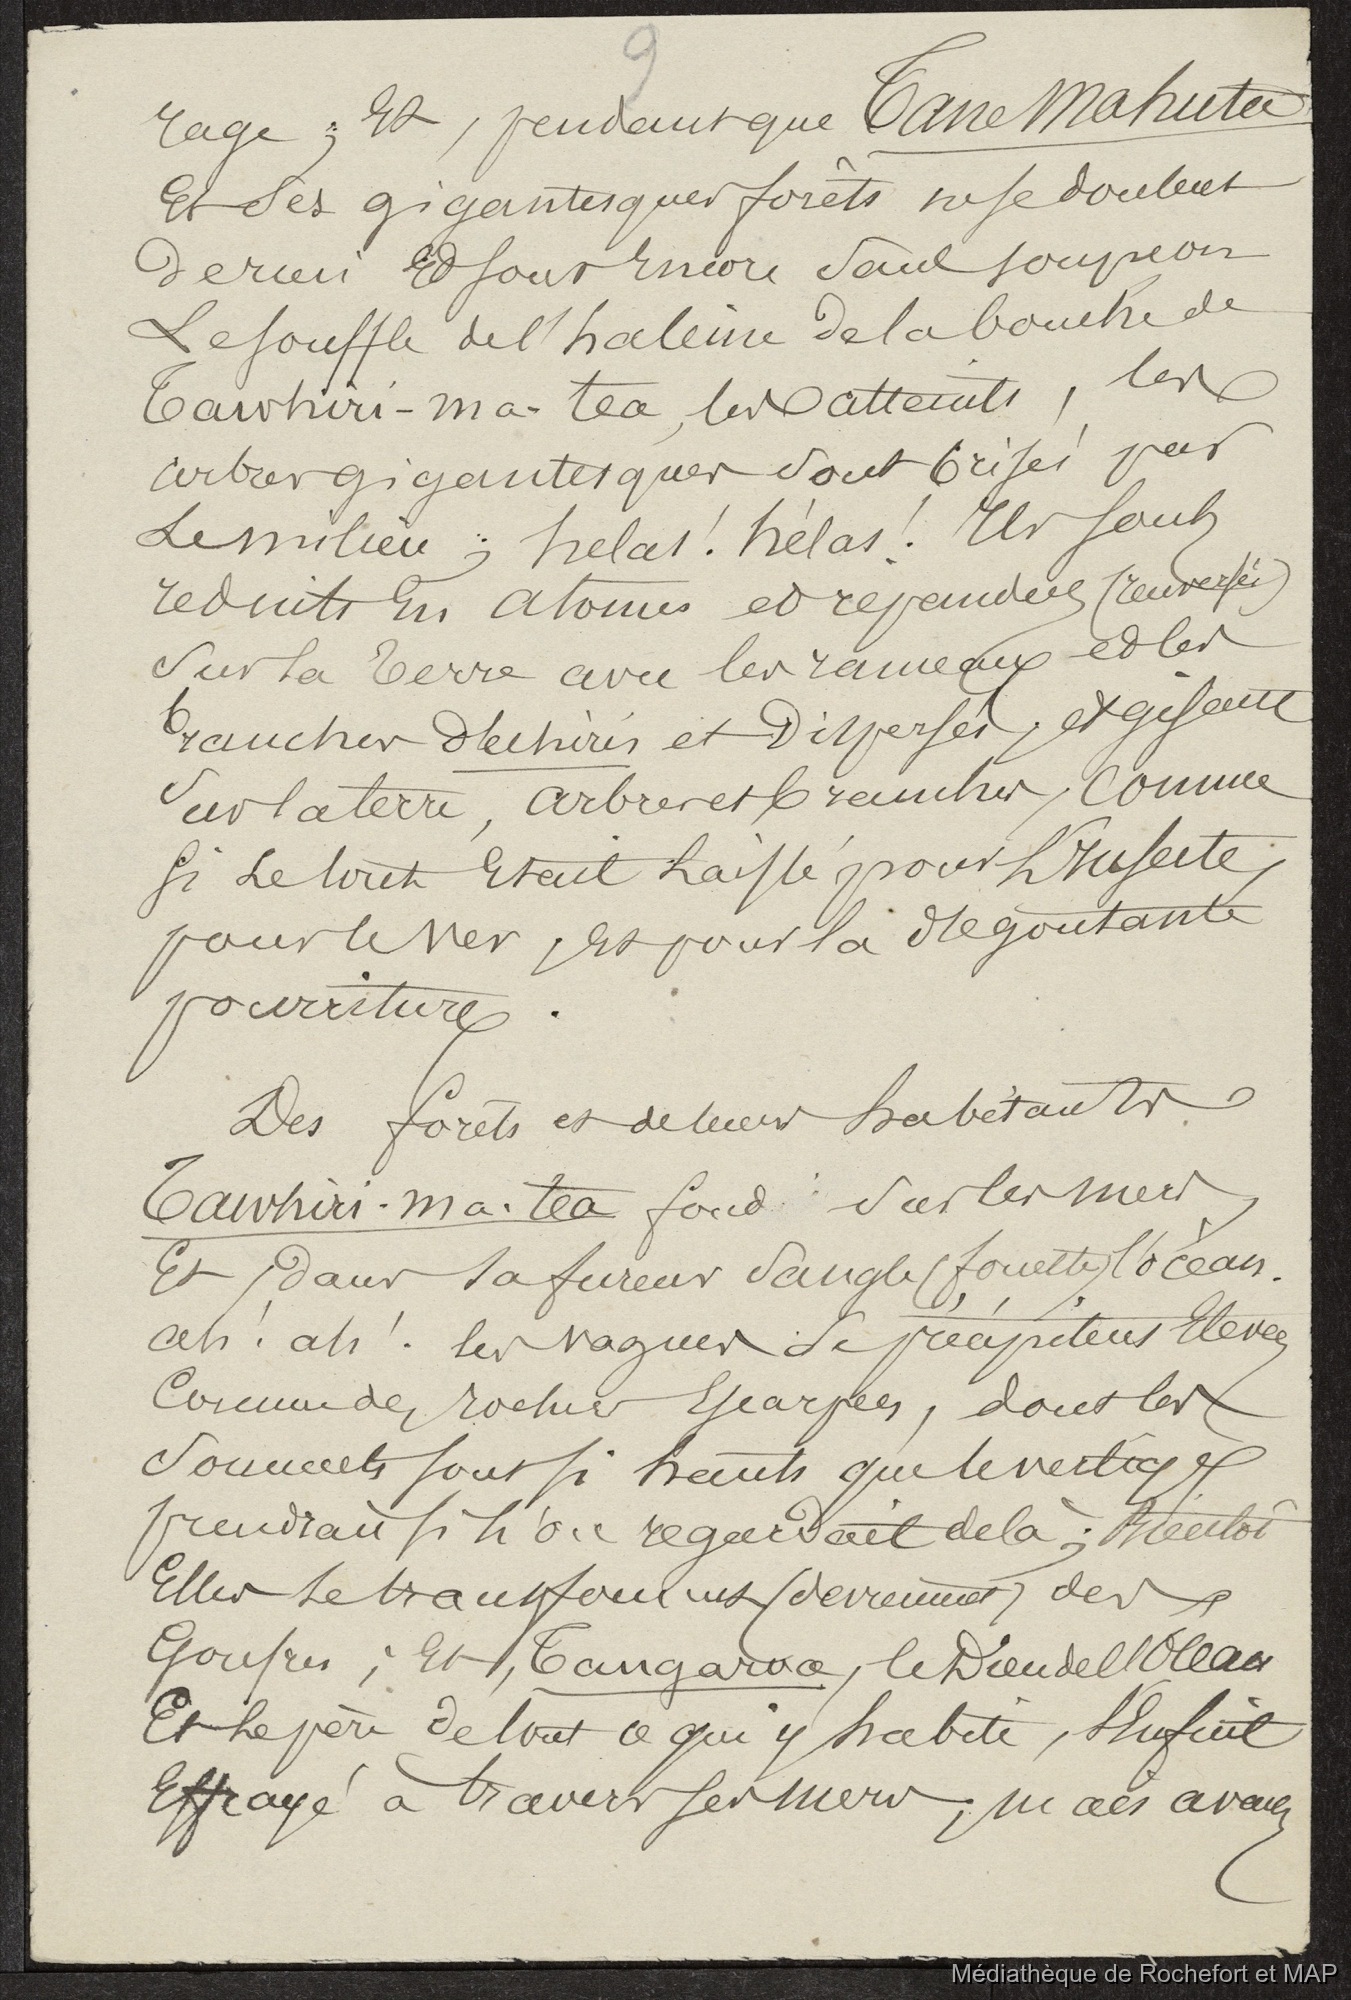 9
rage ; Et, pendant que Tane Mahuta
Et ses gigantesques forêts ne se doutent
de rien Et sont Encore sans soupçon
Le souffle de l'haleine de la bouche de
Tawhiri-ma-tea, les atteints, les
arbres gigantesques sont brisés par
Le milieu ; helas! hélas! Ils sont
reduits En atomes et répandus (renversés)
Sur la terre avec les rameaux et les
branches déchirés et Dispersés, et gisant
Sur la terre, arbres et branches, comme
Si Le tout Etait laissé pour L'Insecte,
pour le Ver, Et pour la dégoutante
pourriture.
Des forêts et de leurs habitants
Tawhiri-ma-tea fond sur les mers,
Et, dans sa fureur sangle (fouette) l'océan.
ah! ah! les vagues se précipitent Elevées
Comme des rochers Escarpés, dont les
Sommets sont si hauts que le vertige
prendrait si l'on regardait de là ; bientôt
Elles se transforment (deviennent) des
Goufres ; Et, Tangaroa, le Dieu de l'Océan
Et Le père de tout ce qui y habite, S'Enfuit
Effrayé à travers ses mers ; mais avant
Médiathèque de Rochefort et MAP